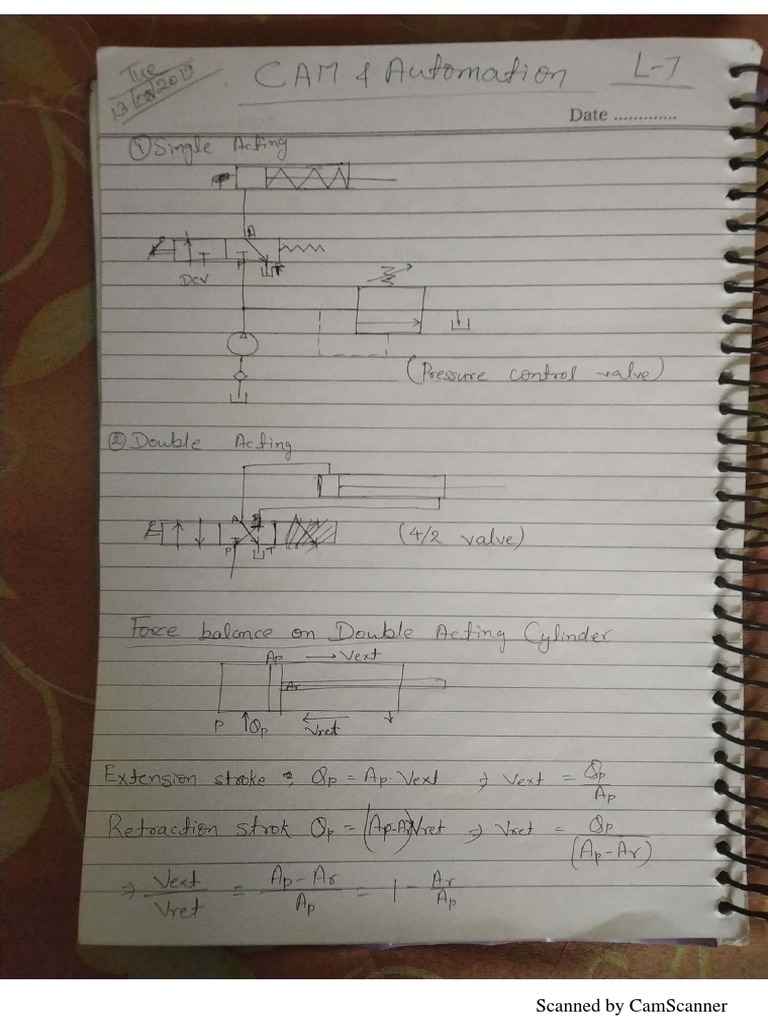 Tue
13/08/2019
CAM & Automation
L-7
Date .............
① Single Acting
A
P T
DCV
(Pressure control valve)
② Double Acting
A B
P T
(4/2 valve)
Force balance on Double Acting Cylinder
Ap → Vext
Ar
P ↑Qp ← Vret ↓
Extension stroke : Qp = Ap. Vext ⇒ Vext = Qp / Ap
Retraction strok Qp = (Ap-Ar)Vret ⇒ Vret = Qp / (Ap-Ar)
⇒ Vext / Vret = Ap-Ar / Ap = 1 - Ar / Ap
Scanned by CamScanner